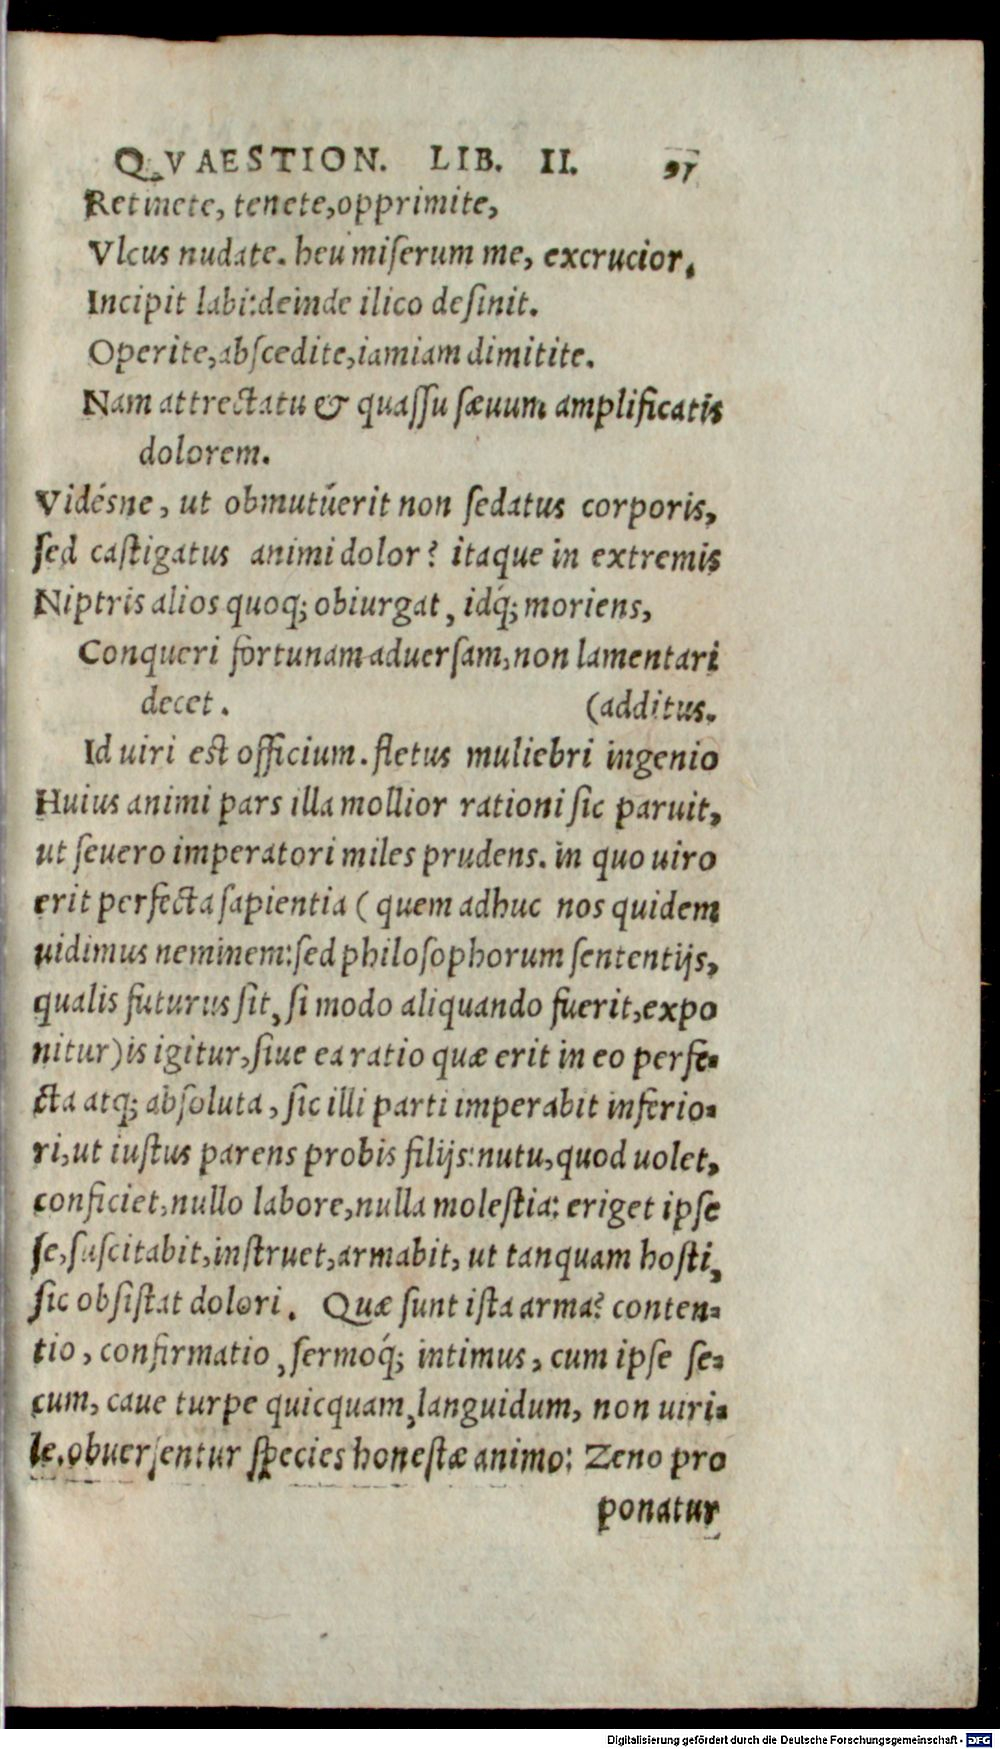 QVAESTION. LIB. II. 97
Retinete, tenete, opprimite,
Vlcus nudate. heu miſerum me, excrucior.
Incipit labi: deinde ilico deſinit.
Operite, abſcedite, iamiam dimitite.
Nam attrectatu & quaſſu ſæuum amplificatis
dolorem.
Vidésne, ut obmutúerit non ſedatus corporis,
ſed caſtigatus animi dolor? itaque in extremis
Niptris alios quoq; obiurgat, idq́; moriens,
Conqueri fortunam aduerſam, non lamentari
decet. (additus.
Id uiri est officium. fletus muliebri ingenio
Huius animi pars illa mollior rationi ſic paruit,
ut ſeuero imperatori miles prudens. in quo uiro
erit perfecta ſapientia (quem adhuc nos quidem
uidimus neminem: ſed philoſophorum ſententijs,
qualis futurus ſit, ſi modo aliquando fuerit, expo
nitur) is igitur, ſiue ea ratio quæ erit in eo perfe-
cta atq; abſoluta, ſic illi parti imperabit inferio-
ri, ut iuſtus parens probis filijs: nutu, quod uolet,
conficiet, nullo labore, nulla moleſtia: eriget ipſe
ſe, ſuſcitabit, inſtruet, armabit, ut tanquam hoſti,
ſic obſiſtat dolori. Quæ ſunt iſta arma? conten-
tio, confirmatio, ſermoq́; intimus, cum ipſe ſe-
cum, caue turpe quicquam, languidum, non uiri-
le. obuerſentur ſpecies honeſtæ animo: Zeno pro
ponatur
Digitalisierung gefördert durch die Deutsche Forschungsgemeinschaft - DFG